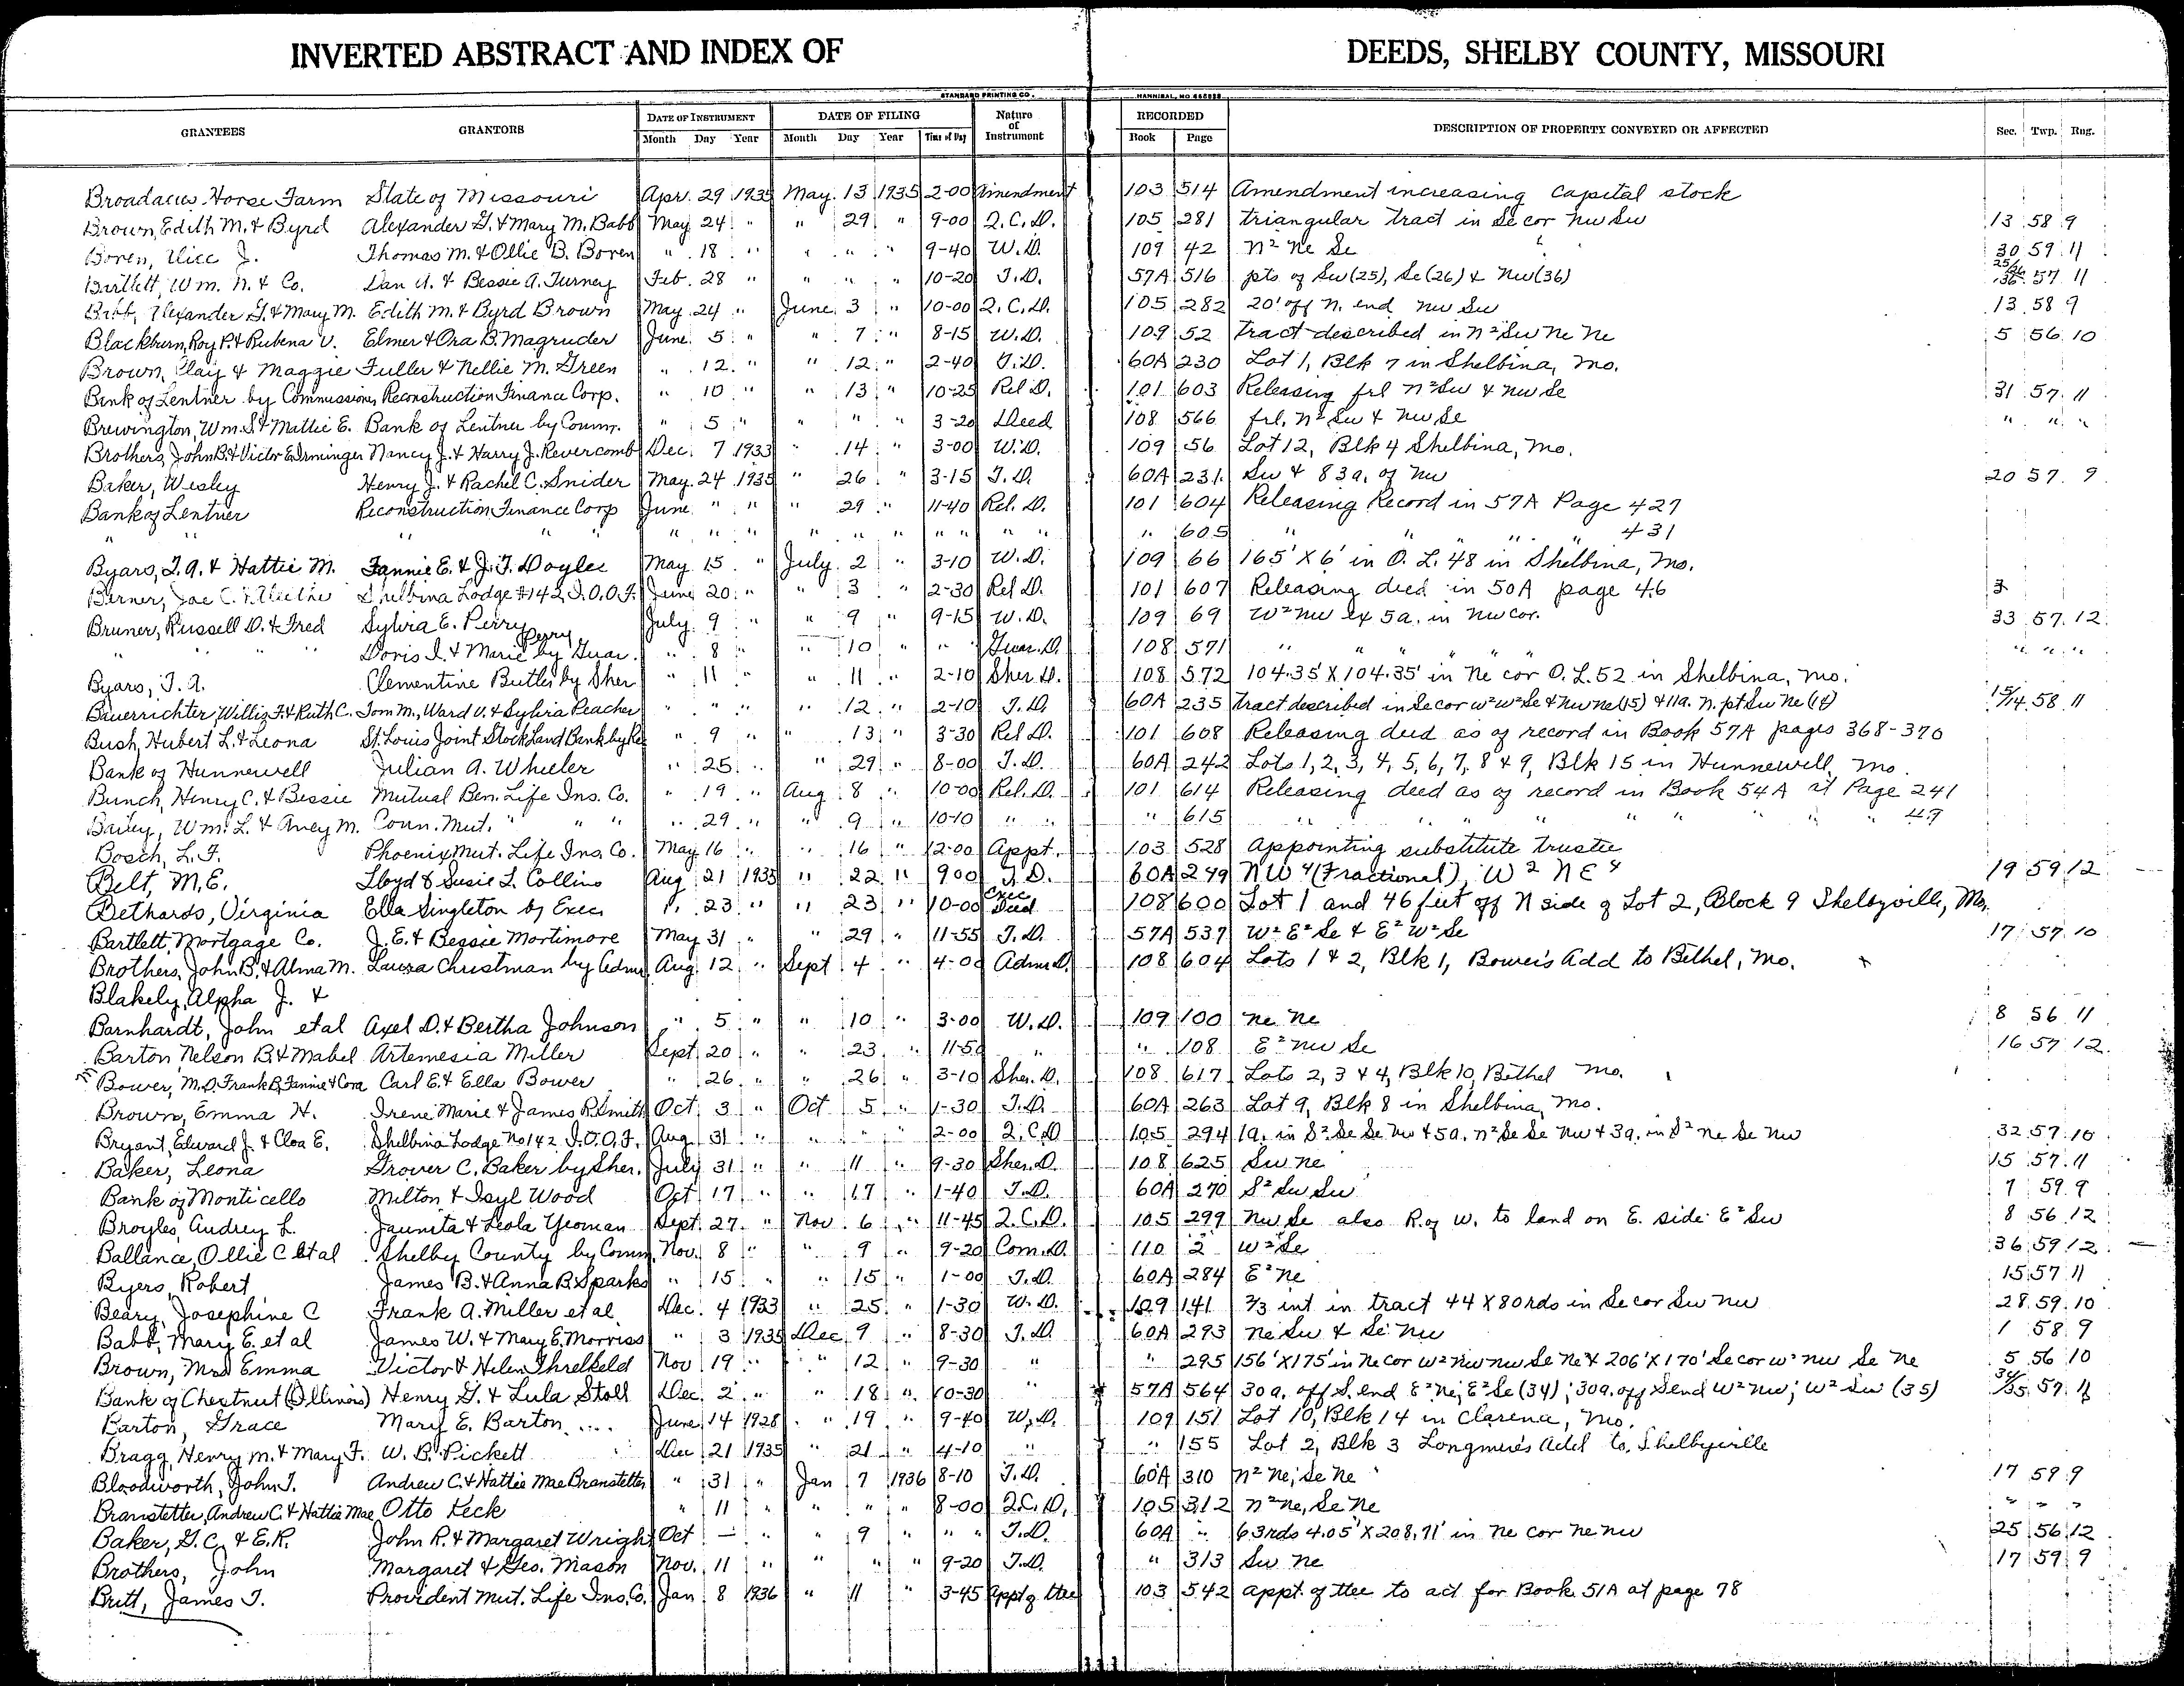 INVERTED ABSTRACT AND INDEX OF DEEDS, SHELBY COUNTY, MISSOURI
STANDARD PRINTING CO. HANNIBAL, MO
GRANTEES GRANTORS DATE OF INSTRUMENT DATE OF FILING Nature of Instrument RECORDED DESCRIPTION OF PROPERTY CONVEYED OR AFFECTED Sec. Twp. Rng.
Month Day Year Month Day Year Time of Day Book Page
Broadacres Horse Farm State of Missouri Apr. 29 1935 May 13 1935 2-00 Amendment 103 514 Amendment increasing Capital stock
Brown, Edith M. & Byrd Alexander G. & Mary M. Babb May 24 " " 29 " 9-00 Q.C.D. 105 281 triangular tract in Se cor Nw Sw 13 58 9
Boren, J. Thomas M. & Ollie B. Boren " 18 " " " " 9-40 W.D. 109 42 N² Ne Se 30 59 11
Bartlett, Wm. N. & Co. Dan A. & Bessie A. Turney Feb. 28 " " " " 10-20 T.D. 57A 516 pts of Sw (25), Se (26) & Nw (36) 25/26/36 57 11
Babb, Alexander G. & Mary M. Edith M. & Byrd Brown May 24 " June 3 " 10-00 Q.C.D. 105 282 20' off N. end Nw Sw 13 58 9
Blackburn, Roy P. & Rubena V. Elmer & Ora B. Magruder June 5 " " 7 " 8-15 W.D. 109 52 Tract described in N² Sw Ne Ne 5 56 10
Brown, Clay & Maggie Fuller & Nellie M. Green " 12 " " 12 " 2-40 T.D. 60A 230 Lot 1, Blk 7 in Shelbina, Mo.
Bank of Lentner by Commissioner Reconstruction Finance Corp. " 10 " " 13 " 10-25 Rel D. 101 603 Releasing frl N² Sw & Nw Se 31 57 11
Brewington, Wm. S. & Mattie E. Bank of Lentner by Comm. " 5 " " " " 3-20 Deed 108 566 frl. N² Sw & Nw Se " " "
Brothers, John B. & Victor E. Irminger Nancy J. & Harry J. Revercomb Dec. 7 1933 " 14 " 3-00 W.D. 109 56 Lot 12, Blk 4 Shelbina, Mo.
Baker, Wesley Henry J. & Rachel C. Snider May 24 1935 " 26 " 3-15 T.D. 60A 231 Sw & 83a. of Nw 20 57 9
Bank of Lentner Reconstruction Finance Corp June " " " 29 " 11-40 Rel. D. 101 604 Releasing Record in 57A Page 427
" " " " " " " " " " " " " " 605 " " " " 431
Byars, T.A. & Hattie M. Fannie E. & J.T. Doyle May 15 " July 2 " 3-10 W.D. 109 66 165' X 6' in O.L. 48 in Shelbina, Mo.
Berner, Joe C. & Shelbina Lodge #142 I.O.O.F. June 20 " " 3 " 2-30 Rel D. 101 607 Releasing deed in 50A page 46
Bruner, Russell D. & Fred Sylvia E. Perry July 9 " " 9 " 9-15 W.D. 109 69 W² Nw ex 5a. in Nw cor. 33 57 12
" " " Doris I. & Marie Perry by Guar. " 8 " " 10 " " Guar. D. 108 571 " " " " " " "
Byars, T.A. Clementine Butler by Sher " 11 " " 11 " 2-10 Sher D. 108 572 104.35' X 104.35' in Ne cor O.L. 52 in Shelbina, Mo.
Bauerrichter, Willis F. & Ruth C. Tom M., Ward V. & Sylvia Peacher " " " " 12 " 2-10 T.D. 60A 235 Tract described in Se cor W² W² Se & Nw Ne (15) & 11a. N. pt Sw Ne (14) 15/14 58 11
Bush, Hubert L. & Leona St. Louis Joint Stock Land Bank by Rec " 9 " " 13 " 3-30 Rel D. 101 608 Releasing deed as of record in Book 57A pages 368-370
Bank of Hunnewell Julian A. Wheeler " 25 " " 29 " 8-00 T.D. 60A 242 Lots 1, 2, 3, 4, 5, 6, 7, 8 & 9, Blk 15 in Hunnewell, Mo.
Bunch, Henry C. & Bessie Mutual Ben. Life Ins. Co. " 19 " Aug 8 " 10-00 Rel. D. 101 614 Releasing deed as of record in Book 54A at Page 241
Bailey, Wm. L. & Aney M. Conn. Mut. " " " " 29 " " 9 " 10-10 " " " 615 " " " " " " " " 49
Bosch, L.F. Phoenix Mut. Life Ins. Co. May 16 " " 16 " 12-00 Appt. 103 528 Appointing substitute trustee
Belt, M.E. Lloyd & Susie L. Collins Aug 21 1935 " 22 " 9 00 T.D. 60A 249 NW 4 (Fractional), W 2 NE 4 19 59 12
Bethards, Virginia Ella Singleton by Exec " 23 " " 23 " 10-00 Exec Deed 108 600 Lot 1 and 46 feet off N side of Lot 2, Block 9 Shelbyville, Mo.
Bartlett Mortgage Co. J.E. & Bessie Mortimore May 31 " " 29 " 11-55 T.D. 57A 537 W² E² Se & E² W² Se 17 57 10
Brothers, John B. & Alma M. Laura Christman by Adm. Aug 12 " Sept 4 " 4-00 Adm. D. 108 604 Lots 1 & 2, Blk 1, Bower's Add to Bethel, Mo.
Blakely, Alpha J. &
Barnhardt, John et al Axel D. & Bertha Johnson " 5 " " 10 " 3-00 W.D. 109 100 Ne Ne 8 56 11
Barton, Nelson B. & Mabel Artemesia Miller Sept 20 " " 23 " 11-50 " " 108 E² Nw Se 16 57 12
Bower, M.D. Frank B. Fannie & Cora Carl E. & Ella Bower " 26 " " 26 " 3-10 Sher. D. 108 617 Lots 2, 3 & 4, Blk 10, Bethel Mo.
Brown, Emma H. Irene Marie & James R. Smith Oct 3 " Oct 5 " 1-30 T.D. 60A 263 Lot 9, Blk 8 in Shelbina, Mo.
Bryant, Edward J. & Cloa E. Shelbina Lodge No 142 I.O.O.F. Aug 31 " " " " 2-00 Q.C.D 105 294 1a. in S² Se Se Nw & 5a. N² Se Se Nw & 3a. in S² Ne Se Nw 32 57 10
Baker, Leona Grover C. Baker by Sher. July 31 " " 11 " 9-30 Sher. D. 108 625 Sw Ne 15 57 11
Bank of Monticello Milton & Isyl Wood Oct 17 " " 17 " 1-40 T.D. 60A 270 S² Sw Sw 7 59 9
Broyles, Audrey L. Jaunita & Leola Yeoman Sept. 27 " Nov. 6 " 11-45 Q.C.D. 105 299 Nw Se also R. of W. to land on E. side E² Sw 8 56 12
Ballance, Ollie C et al Shelby County by Comm. Nov. 8 " " 9 " 9-20 Com. D. 110 2 W² Se 36 59 12
Byers, Robert James B. & Anna B. Sparks " 15 " " 15 " 1-00 T.D. 60A 284 E² Ne 15 57 11
Beary, Josephine C Frank A. Miller et al Dec. 4 1933 " 25 " 1-30 W.D. 109 141 2/3 int in tract 44 X 80 rds in Se cor Sw Nw 28 59 10
Babb, Mary E. et al James W. & Mary E. Morriss " 3 1935 Dec. 9 " 8-30 T.D. 60A 293 Ne Sw & Se Nw 1 58 9
Brown, Mrs Emma Victor & Helen Threlkeld Nov 19 " " 12 " 9-30 " " 295 156' X 175' in Ne cor W² Nw Nw Se Ne & 206' X 170' Se cor W² Nw Se Ne 5 56 10
Bank of Chestnut (Illinois) Henry G. & Lula Stoll Dec. 2 " " 18 " 10-30 " 57A 564 30a. off S. end E² Ne; E² Se (34); 30a. off S end W² Nw; W² Sw (35) 34/35 57 11
Barton, Grace Mary E. Barton June 14 1928 " 19 " 9-40 W.D. 109 151 Lot 10, Blk 14 in Clarence, Mo.
Bragg, Henry M. & Mary F. W.B. Pickett Dec 21 1935 " 21 " 4-10 " " 155 Lot 2, Blk 3 Longmire's Add to Shelbyville
Bloodworth, John T. Andrew C. & Hattie Mae Branstetter " 31 " Jan 7 1936 8-10 T.D. 60A 310 N² Ne; Se Ne 17 59 9
Branstetter, Andrew C. & Hattie Mae Otto Keck " 11 " " " " 8-00 Q.C.D. 105 312 N² Ne, Se Ne " " "
Baker, G.C. & E.R. John R. & Margaret Wright Oct — " " 9 " " " T.D. 60A " 63 rds 4.05' X 208.71' in Ne cor Ne Nw 25 56 12
Brothers, John Margaret & Geo. Mason Nov. 11 " " " " 9-20 T.D. " 313 Sw Ne 17 59 9
Britt, James T. Provident Mut. Life Ins. Co. Jan 8 1936 " 11 " 3-45 Appt of ttee 103 542 Appt. of ttee to act for Book 51A at page 78